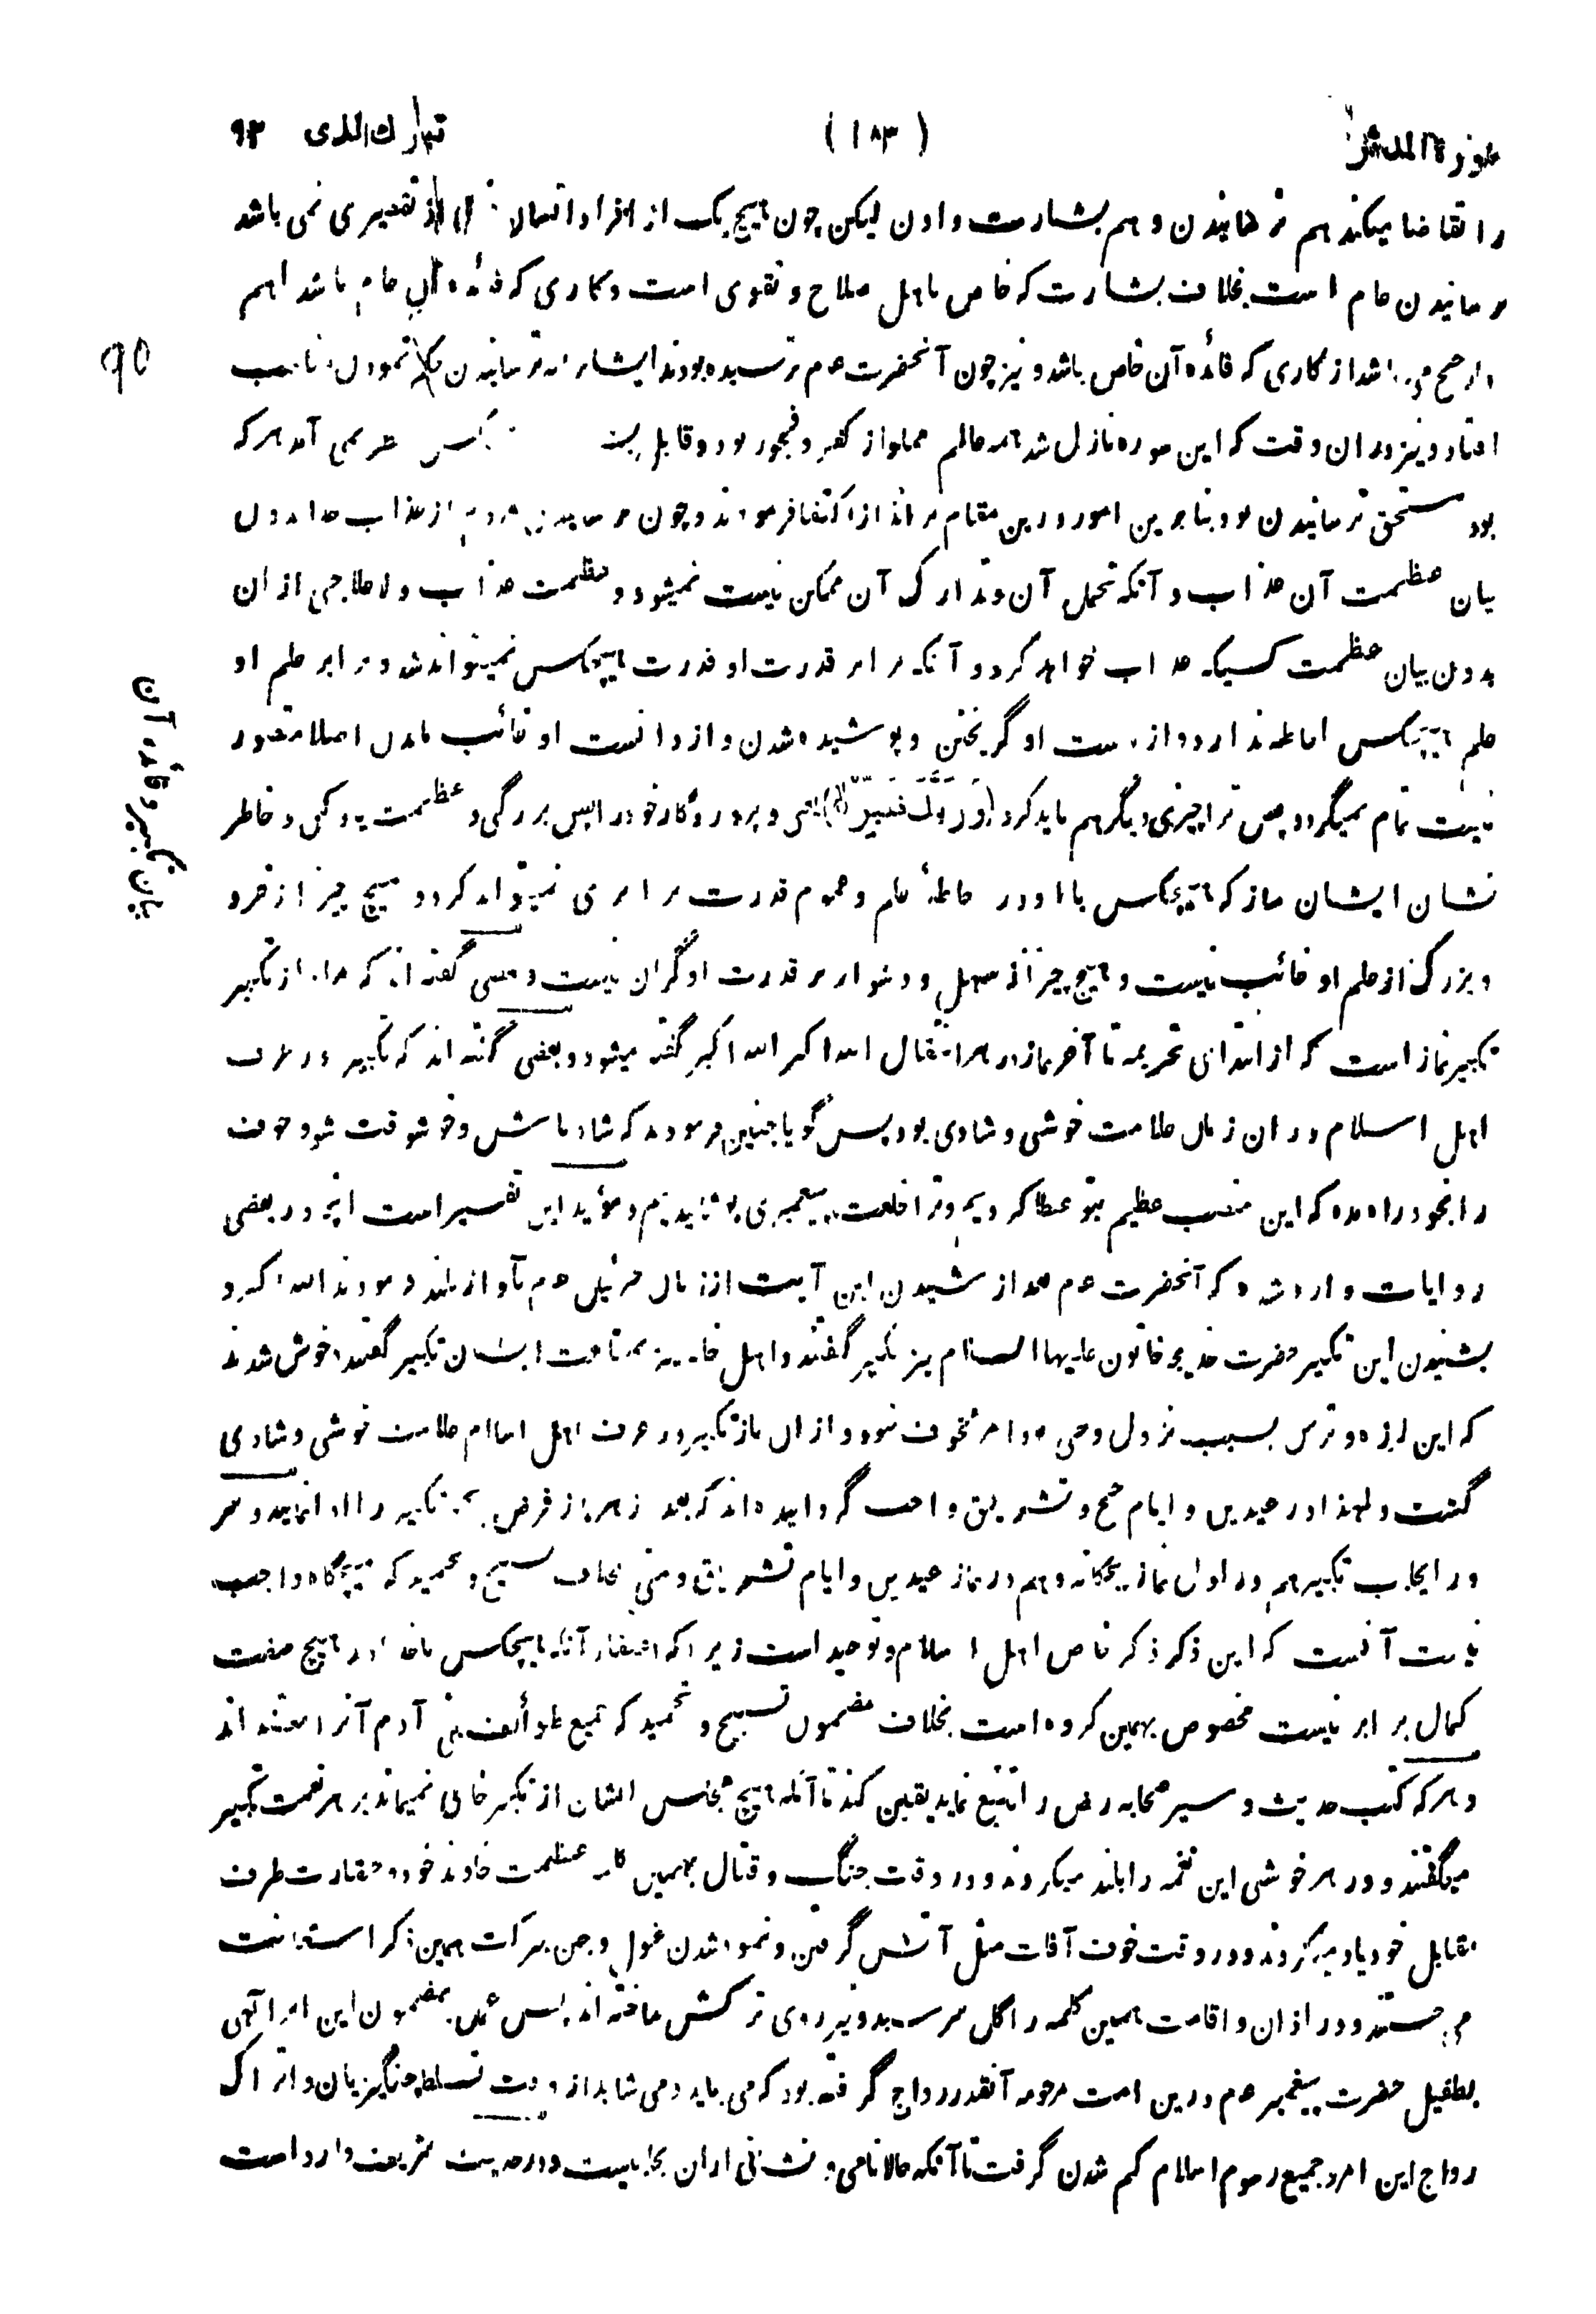 سورة المدثر
( ۱۸۳ )
تبارك الذی ۹۳
را تقاضا میکند هم ترسانیدن و هم بشارت دادن لیکن چون هیچ یک از افراد انسان از تقصیری نمی باشد
ترسانیدن عام است بخلاف بشارت که خاص باهل صلاح و تقوی است و کاری که فائده آن عام باشد اهم
و ارجح می باشد از کاری که فائده آن خاص باشد و نیز چون آنحضرت عم ترسیده بودند ایشانرا ترسانیدن نمودن مناسب
افتاد و نیز دران وقت که این سوره نازل شد همه عالم مملو از کفر و فجور بود و قابل بشارت کسی نظر نمی آمد هر که
بود مستحق ترسانیدن بود بنا برین امور درین مقام بر انذار اکتفا فرمودند و چون ترسانیدن مردم از عذاب خدا بدون
بیان عظمت آن عذاب و آنکه تحمل آن و تدارک آن ممکن نیست نمیشود و عظمت عذاب و لاعلاجی از ان
بدون بیان عظمت کسیکه عذاب خواهد کرد و آنکه برابر قدرت او قدرت هیچکس نمیتواند شد و برابر علم او
علم هیچکس احاطه ندارد و از دست او گریختن و پوشیده شدن و از دانست او غائب ماندن اصلا متصور
نیست تمام نمیگردد پس ترا چیزی دیگر هم باید کرد (وَرَبَّكَ فَكَبِّرْ) یعنی و پروردگار خود را پس بزرگی و عظمت یاد کن و خاطر
نشان ایشان ساز که هیچکس با او در احاطهٔ علم و عموم قدرت برابری نمیتواند کرد و هیچ چیز از خرد
و بزرگ از علم او غائب نیست و هیچ چیز از سهل و دشوار بر قدرت او گران نیست و بعضی گفته اند که مراد از تکبیر
تکبیر نماز است که از ابتدای تحریمه تا آخر نماز در هر انتقال الله اکبر الله اکبر گفته میشود و بعضی گفته اند که تکبیر در عرف
اهل اسلام دران زمان علامت خوشی و شادی بود پس گویا چنین فرمودند که شاد باش و خوشوقت شو و خوف
را بخود راه مده که این منصب عظیم بتو عطا کردیم و ترا خلعت پیغمبری پوشانیدیم و مؤید این تفسیر است آنچه در بعضی
روایات وارد شده که آنحضرت عم بعد از شنیدن این آیت از زبان جبرئیل عم بآواز بلند فرمودند الله اکبر و
بشنیدن این تکبیر حضرت خدیجه خاتون علیها السلام نیز تکبیر گفتند و اهل خانه همه بمتابعت ایشان تکبیر گفتند و خوش شدند
که این لرزه و ترس بسبب نزول وحی بود امر مخوف نبود و ازان باز تکبیر در عرف اهل اسلام علامت خوشی و شادی
گشت و لهذا در عیدین و ایام حج و تشریق واجب گردانیده اند که بعد از هر نماز فرض پنجگانه تکبیر را ادا نمایند و سر
در ایجاب تکبیر هم در اول نماز پنجگانه و هم در نماز عیدین و ایام تشریق و منی بخلاف تسبیح و تحمید که هیچگاه واجب
نیست آنست که این ذکر ذکر خاص اهل اسلام و توحید است زیرا که اعتقاد آنکه هیچکس با خدا در هیچ صفت
کمال برابر نیست مخصوص بهمین گروه است بخلاف مضمون تسبیح و تحمید که جمیع طوائف بنی آدم آنرا معتقد اند
و هر که کتب حدیث و سیر صحابه رض را تتبع نماید یقین کند تا آنکه هیچ مجلس ایشان از تکبیر خالی نمیماند بر هر نعمت تکبیر
میگفتند و در هر خوشی این نغمه را بلند میکردند و در وقت جنگ و قتال بهمین کلمه عظمت خداوند خود و حقارت طرف
مقابل خود یاد میکردند و در وقت خوف آفات مثل آتش گرفتن و نمودار شدن غول و جن ببرکات همین ذکر استعانت
می جستند و در اذان و اقامت همین کلمه را گل سرسبد و تیر روی ترکش ساخته اند پس عمل بمضمون این امر الهی
بطفیل حضرت پیغمبر عم درین امت مرحومه آنقدر رواج گرفته بود که می باید و می شاید از وقت تسلط چنگیزیان و اتراک
رواج این امر و جمیع رسوم اسلام کم شدن گرفت تا آنکه حالا نامی و نشانی ازان بجا نیست و در حدیث شریف وارد است
۹۵
بیان تکبیر و فائده آن